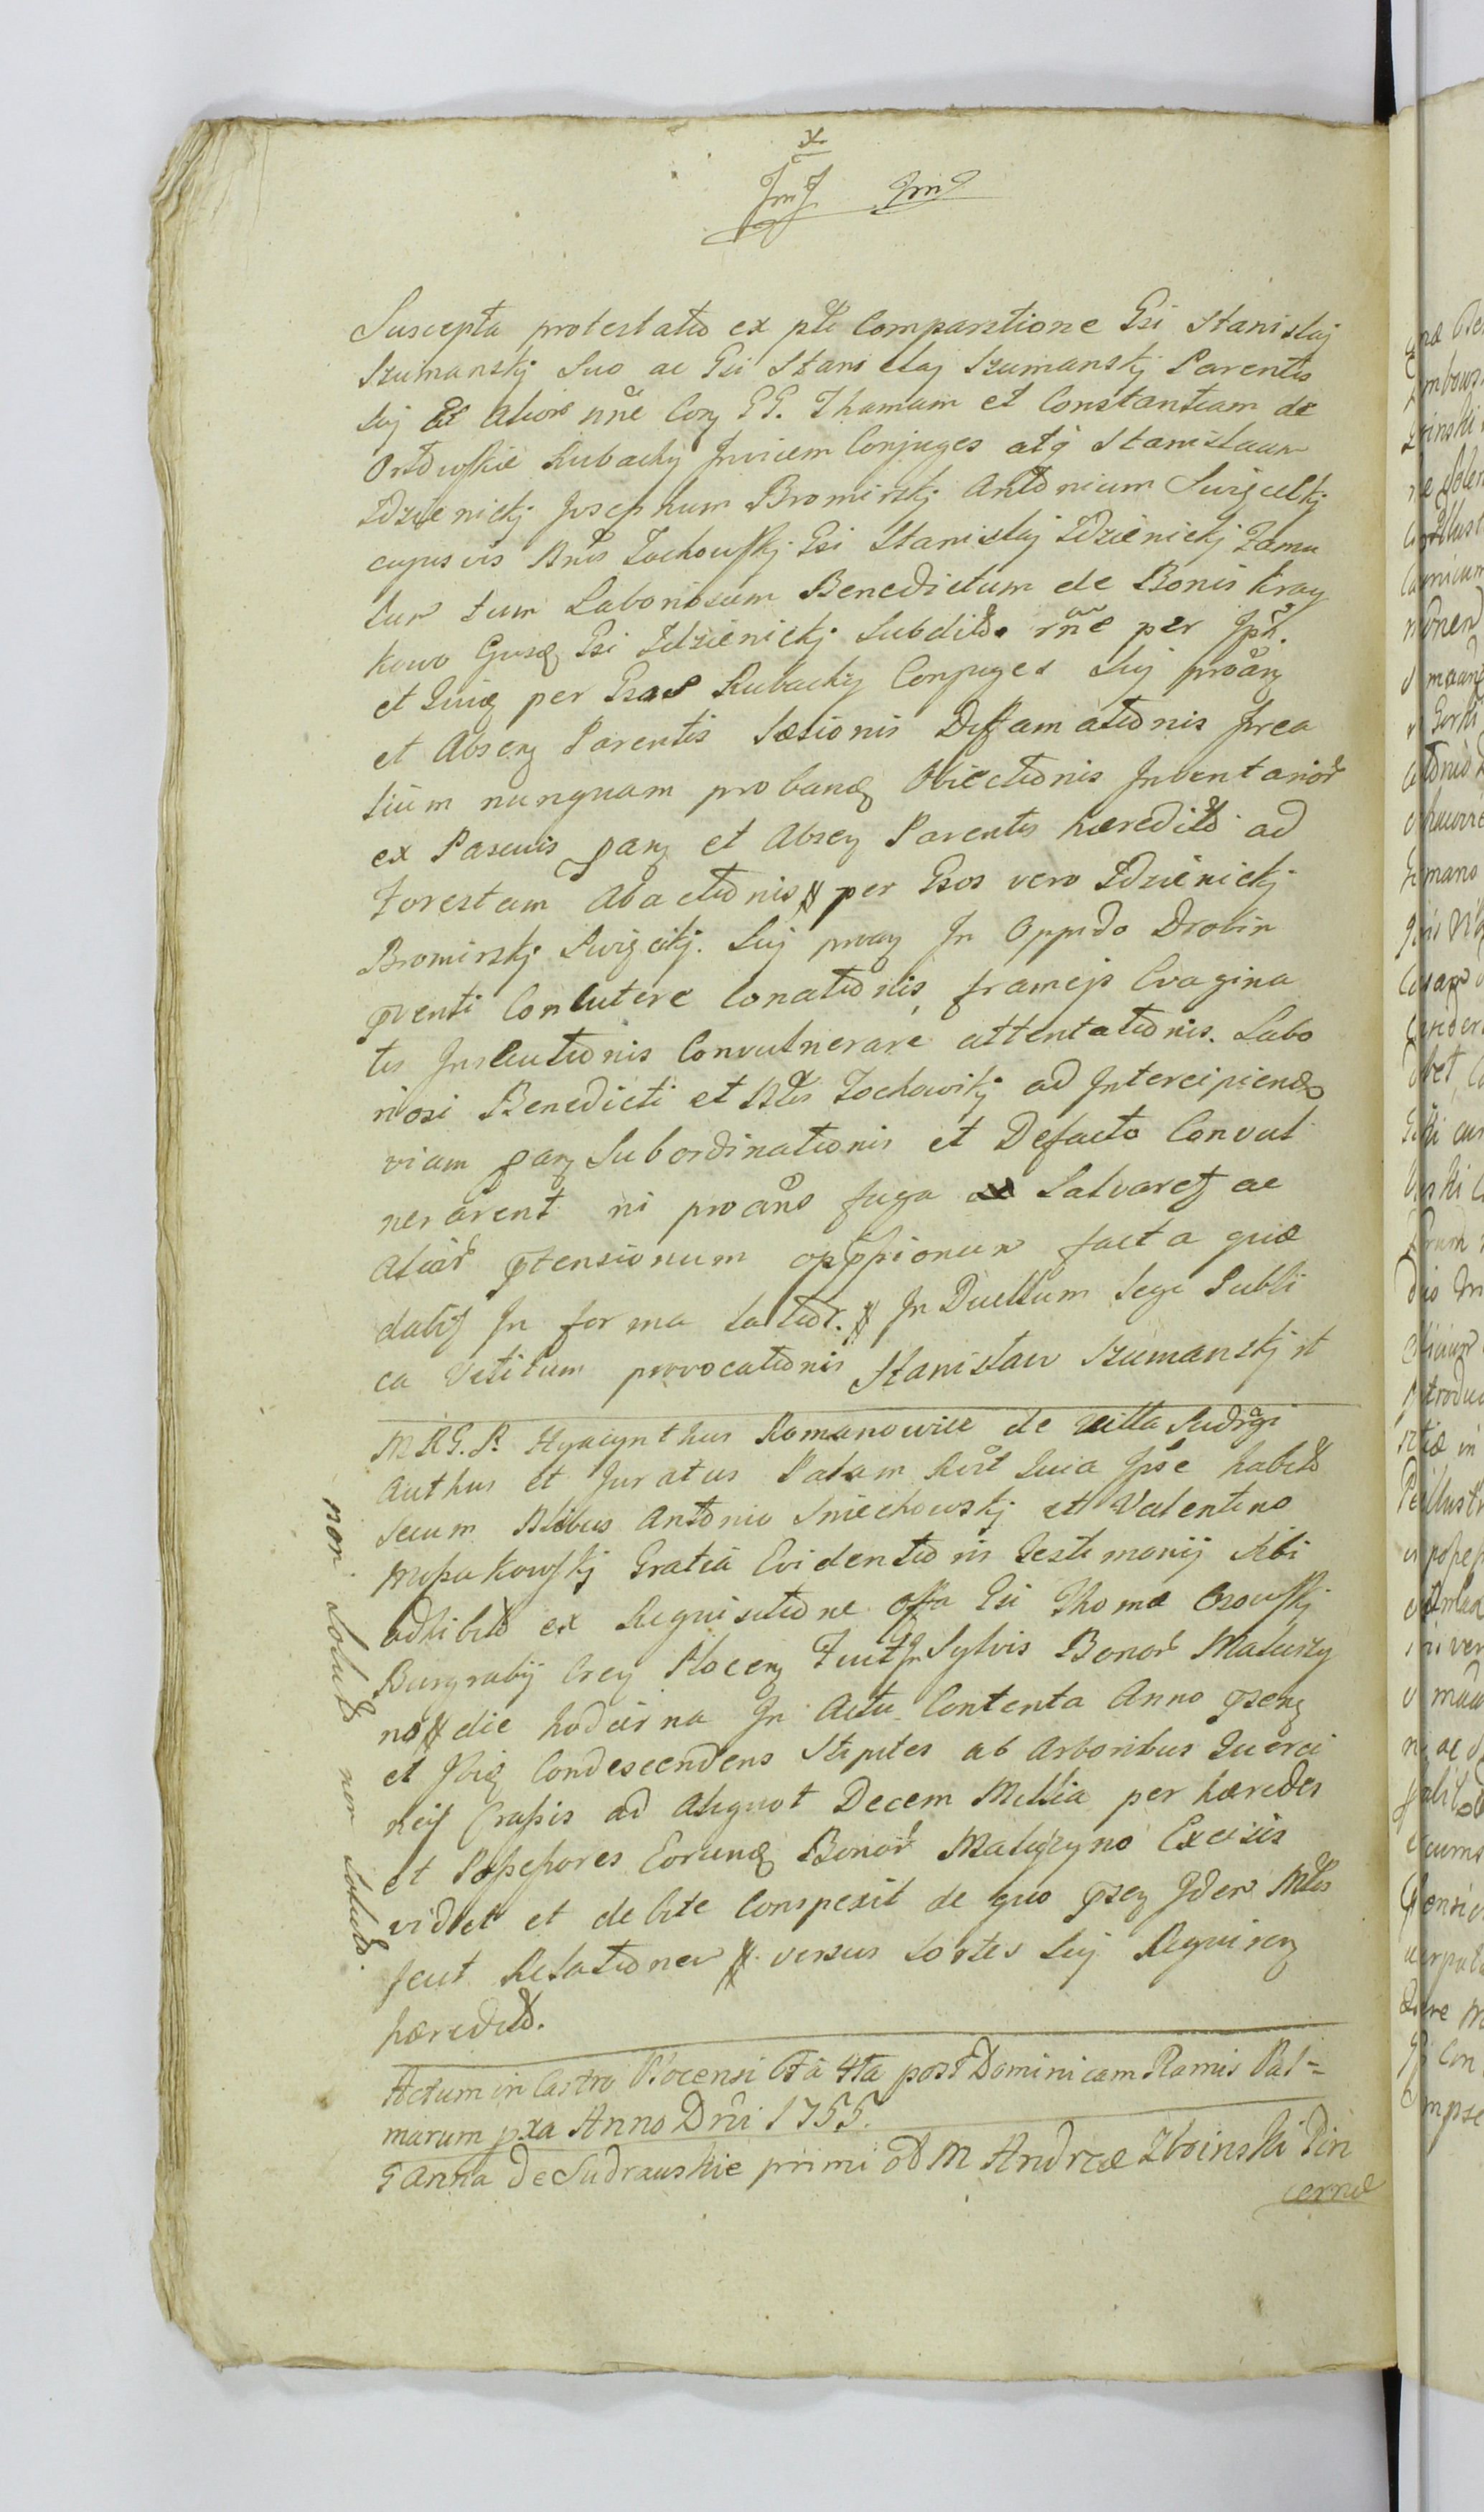 JmJ JmJ
Suscepta protestatio ex pte Comparitione Gsi Stanislaj
Szumanskj Suo ac Gsi Stanislaj Szumanskj Parentis
Suj et alior nne Con GG. Thomam et Constantiam de
Ostowskie Rubachy Invicem Conjuges atq Stanislaum
Idzienickj Josephum Bromirskj Antonium Swięcickj
cujusvis Nris Zochowskj Gsi Stanislaj Idzienickj Famu
lum tum Laboriosum Benedictum de Bonis Kray
kowo Gnsq Gsi Idzienickj Subditos rne per
et Quiq per Gsos Rubachy Conjuges Suj proan
et Absen Parentis Læsionis Diffamationis
tium nunquam proban Obiectionis Inventarior
ex Pascuis et Absen Parentis hæredit ad
Forestam Abactionis per Gsos vero Idzienickj
Bromirskj Swięcikj. Suj proan In Oppido Drobin
pventi Conlutere Conationis frameis Evagina
tis Insecutionis Convulnerare attentationis. Labo
riosi Benedicti et Nris Zochowskj ad Intercipiend
viam Subordinationis et Defacto Convul
nerarent ni proans fuga Salvaret ac
aliar ptensionum oppssionum facta quæ
dabit In forma latior. In Duellum lege Publi
ca Vetitum provocationis Stanislaw Szumanskj
M R G. R Hyacynthus Romanowicz de villa Sudragi
authus et Juratus Palam Rlt Quia Ipse habitis
secum Nlibus Antonio Sniechowskj et Valentino
Mosakowskj Gratia Evidentioris Testimonij Sibi
adhibitis ex Requisitione offa Gsi Thomæ Osowskj
Burgrabij Cren Plocen Fuit In Sylvis Bonor Maluszy
no die hodierna In Actu Contenta Anno psen
et Ibiq Condescendens Stipites ab Arboribus Querci
neis Crassis ad aliquot Decem Millia per hæredes
et Possessores Eorund Bonor Maluszyno Excisis
vidit et debite Conspexit de quo psen Iden Mtlis
fecit Relationem versus Sortes Suj Requiren
hæredit.
Actum in Castro Plocensi fia 4ta post Dominicam Ramis Pal=
marum pxa Anno Dni 1755.
G Anna de Sudrawskie primi od M Andreæ Zboinski Pin
cernæ
non solut non solut.